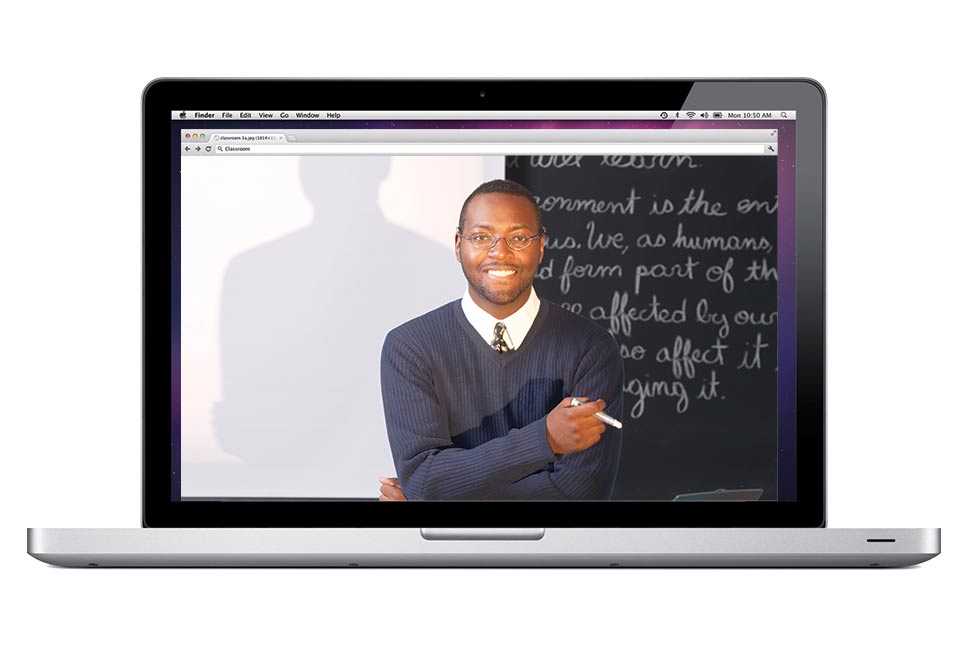 Finder File Edit View Go Window Help Mon 10:50 AM
classroom 1a.jpg (1814×12
Classroom
will learn.
ronment is the
us. We, as humans,
d form part of th
affected by our
so affect it
ging it.